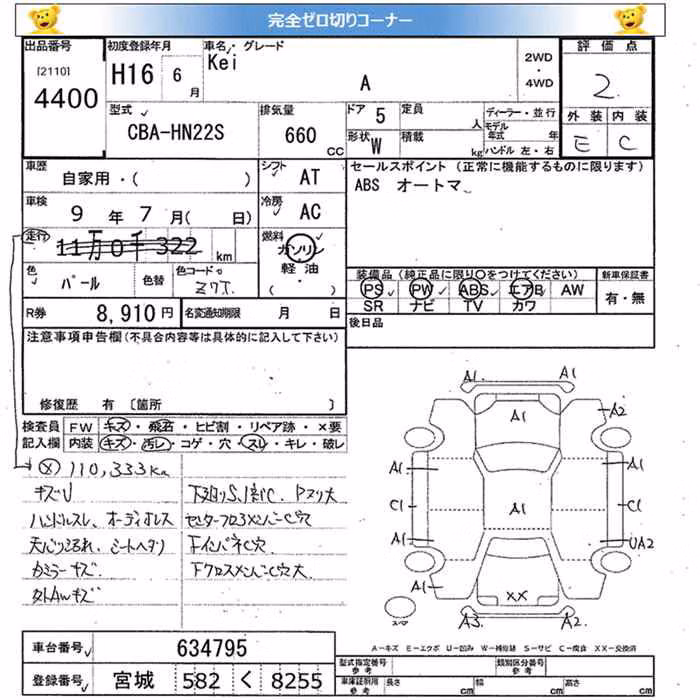 完全ゼロ切りコーナー
出品番号
[2110]
4400
初度登録年月
H16 6月
車名・グレード
Kei
A
2WD
・
4WD
評価点
2
外装 内装
E C
型式
CBA-HN22S
排気量
660 CC
ドア 5
形状 W
定員 人
積載 kg
ディーラー・並行
モデル年式 年
ハンドル 左・右
車歴
自家用・( )
シフト AT
セールスポイント (正常に機能するものに限ります)
ABS オートマ
車検
9年7月( 日)
冷房 AC
走行
11万0千322 km
燃料
ガソリン
軽油
( )
色 パール 色替
色コード Z7T
装備品 (純正品に限り○をつけてください)
PS PW ABS エアB AW
SR ナビ TV カワ
新車保証書
有・無
R券 8,910円
名変通知期限 月 日
後日品
注意事項申告欄(不具合内容等は具体的に記入して下さい)
修復歴 有 〔箇所 〕
検査員 FW キズ・飛石・ヒビ割・リペア跡・×要
記入欄 内装 キズ・汚レ・コゲ・穴・スレ・キレ・破レ
Ⓧ 110,333Km
キズU
下廻りS、1部C、Pスリ大
ハンドルスレ、オーディオレス
センターフロアメンバーC穴
天バリよごれ、シートヘタリ
下インパネC穴
カミラーキズ
下クロスメンバーC穴大
外AWキズ
A1 A1
A1 A2
A1 A1
C1 A1 C1
A1 UA2
A1
XX
A3 A2
スペア
A-キズ E-エクボ U-凹み W-補修跡 S-サビ C-腐食 XX-交換済
車台番号 634795
登録番号 宮城 582 く 8255
型式指定番号
参考
類別区分番号
参考
車庫証明用
参考
長さ cm 幅 cm 高さ cm